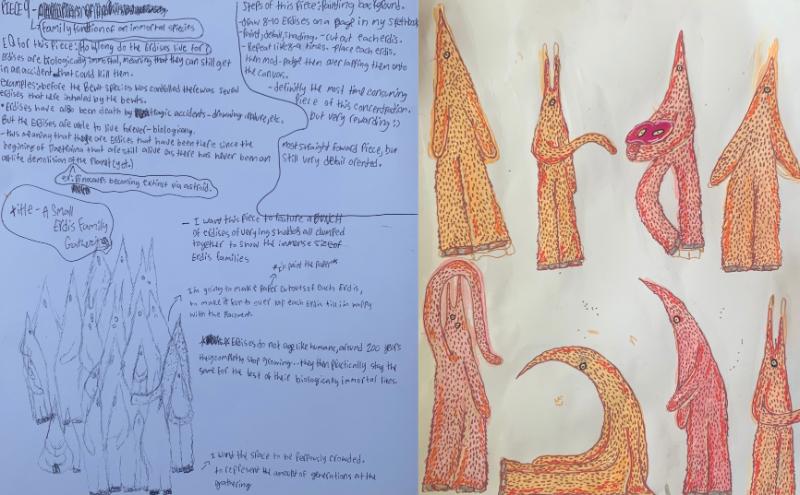 PIECE 9 -
↳ Family function of an immortal species
EQ for this piece: How long do the Erdises live for?
Erdises are biologically immortal, meaning that they can still get
in an accident that could kill them.
Examples: before the Bewt species was controlled there was several
erdises that were inhaled by the bewts.
• Erdises have also been death by tragic accidents - drowning, nature, etc.
But the Erdises are able to live forever - biologicaly.
- this meaning that there are Erdises that have been here since the
begining of that are still alive as there has never been an
demolition of the planet (yet.)
ex: Dinosaurs becoming extinct via astroid.
Title - A Small
Erdis Family
Gathering
Steps of this piece: Painting background.
- draw 8-10 Erdises on a page in my sketchbook
- Paint, detail, shading. - cut out each erdis.
- Repeat like 8-9 times. Place each erdis.
then mod-podge them overlapping them onto
the canvas.
- definitly the most time consuming
Piece of this concentration.
but very rewarding :)
most straight foward Piece, but
still very detail orented.
- I want this piece to feature a BUNCH
of erdises of varying shades all clumped
together to show the immense size of
Erdis families
* paint the paper *
I'm going to make paper cutouts of each Erdis,
to make it fun to over lap each Erdis till im happy
with the placement.
Erdises do not age like humans, around 200 years
they completly stop growing... they then practically stay the
same for the rest of their biologically immortal lives.
I want the space to be crowded.
to represent the amount of generations at the
gathering